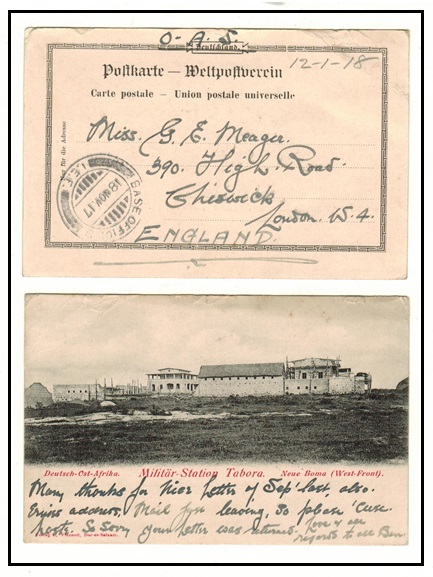 O.A.S.
Deutschland.
12-1-18
Postkarte — Weltpostverein
Carte postale — Union postale universelle
Miss. G. E. Meager.
390. High. Road
Chiswick
London. W. 4.
ENGLAND
Nur für die Adresse
BASE OFFICE
I.E.F.
18 NOV. 17
Deutsch-Ost-Afrika. Militär-Station Tabora. Neue Boma (West-Front).
Many thanks for nice letter of Sep' last, also.
address. Mail just leaving, so please 'cuse
haste. So sorry your letter was returned. Love &
regards to all
Dar-es-Salaam.